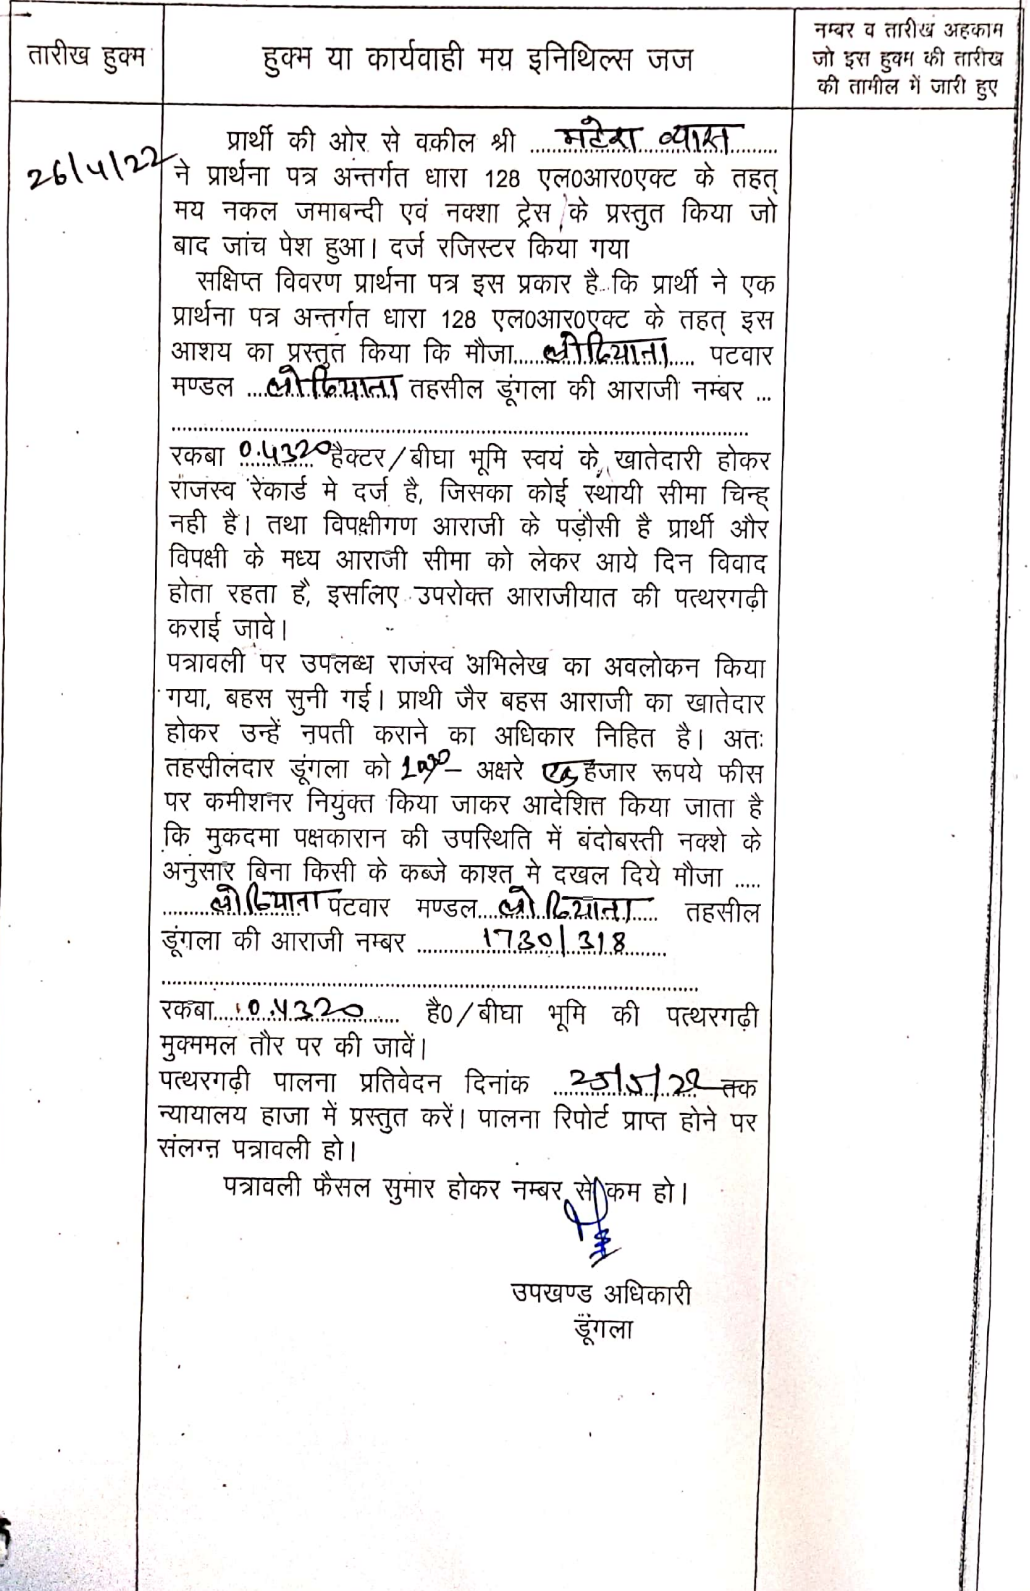 तारीख हुक्म
हुक्म या कार्यवाही मय इनिथिल्स जज
नम्बर व तारीख अहकाम
जो इस हुक्म की तारीख
की तामील में जारी हुए
26/4/22
प्रार्थी की ओर से वकील श्री ......................
ने प्रार्थना पत्र अन्तर्गत धारा 128 एल0आर0एक्ट के तहत्
मय नकल जमाबन्दी एवं नक्शा ट्रेस के प्रस्तुत किया जो
बाद जांच पेश हुआ। दर्ज रजिस्टर किया गया
सक्षिप्त विवरण प्रार्थना पत्र इस प्रकार है कि प्रार्थी ने एक
प्रार्थना पत्र अन्तर्गत धारा 128 एल0आर0एक्ट के तहत् इस
आशय का प्रस्तुत किया कि मौजा.................. पटवार
मण्डल .................. तहसील डूंगला की आराजी नम्बर ...
रकबा 0.4320 हैक्टर/बीघा भूमि स्वयं के खातेदारी होकर
राजस्व रेकार्ड मे दर्ज है, जिसका कोई स्थायी सीमा चिन्ह्
नही है। तथा विपक्षीगण आराजी के पड़ौसी है प्रार्थी और
विपक्षी के मध्य आराजी सीमा को लेकर आये दिन विवाद
होता रहता है, इसलिए उपरोक्त आराजीयात की पत्थरगढ़ी
कराई जावे।
पत्रावली पर उपलब्ध राजस्व अभिलेख का अवलोकन किया
गया, बहस सुनी गई। प्राथी जैर बहस आराजी का खातेदार
होकर उन्हें नपती कराने का अधिकार निहित है। अतः
तहसीलदार डूंगला को 1000/- अक्षरे एक हजार रूपये फीस
पर कमीशनर नियुक्त किया जाकर आदेशित किया जाता है
कि मुकदमा पक्षकारान की उपस्थिति में बंदोबस्ती नक्शे के
अनुसार बिना किसी के कब्जे काश्त मे दखल दिये मौजा .....
.................. पटवार मण्डल.................. तहसील
डूंगला की आराजी नम्बर ......1730/318......
रकबा...0.4320... है0/बीघा भूमि की पत्थरगढ़ी
मुक्ममल तौर पर की जावें।
पत्थरगढ़ी पालना प्रतिवेदन दिनांक ..25/5/22.. तक
न्यायालय हाजा में प्रस्तुत करें। पालना रिपोर्ट प्राप्त होने पर
संलग्न पत्रावली हो।
पत्रावली फैसल सुमार होकर नम्बर से कम हो।
उपखण्ड अधिकारी
डूंगला